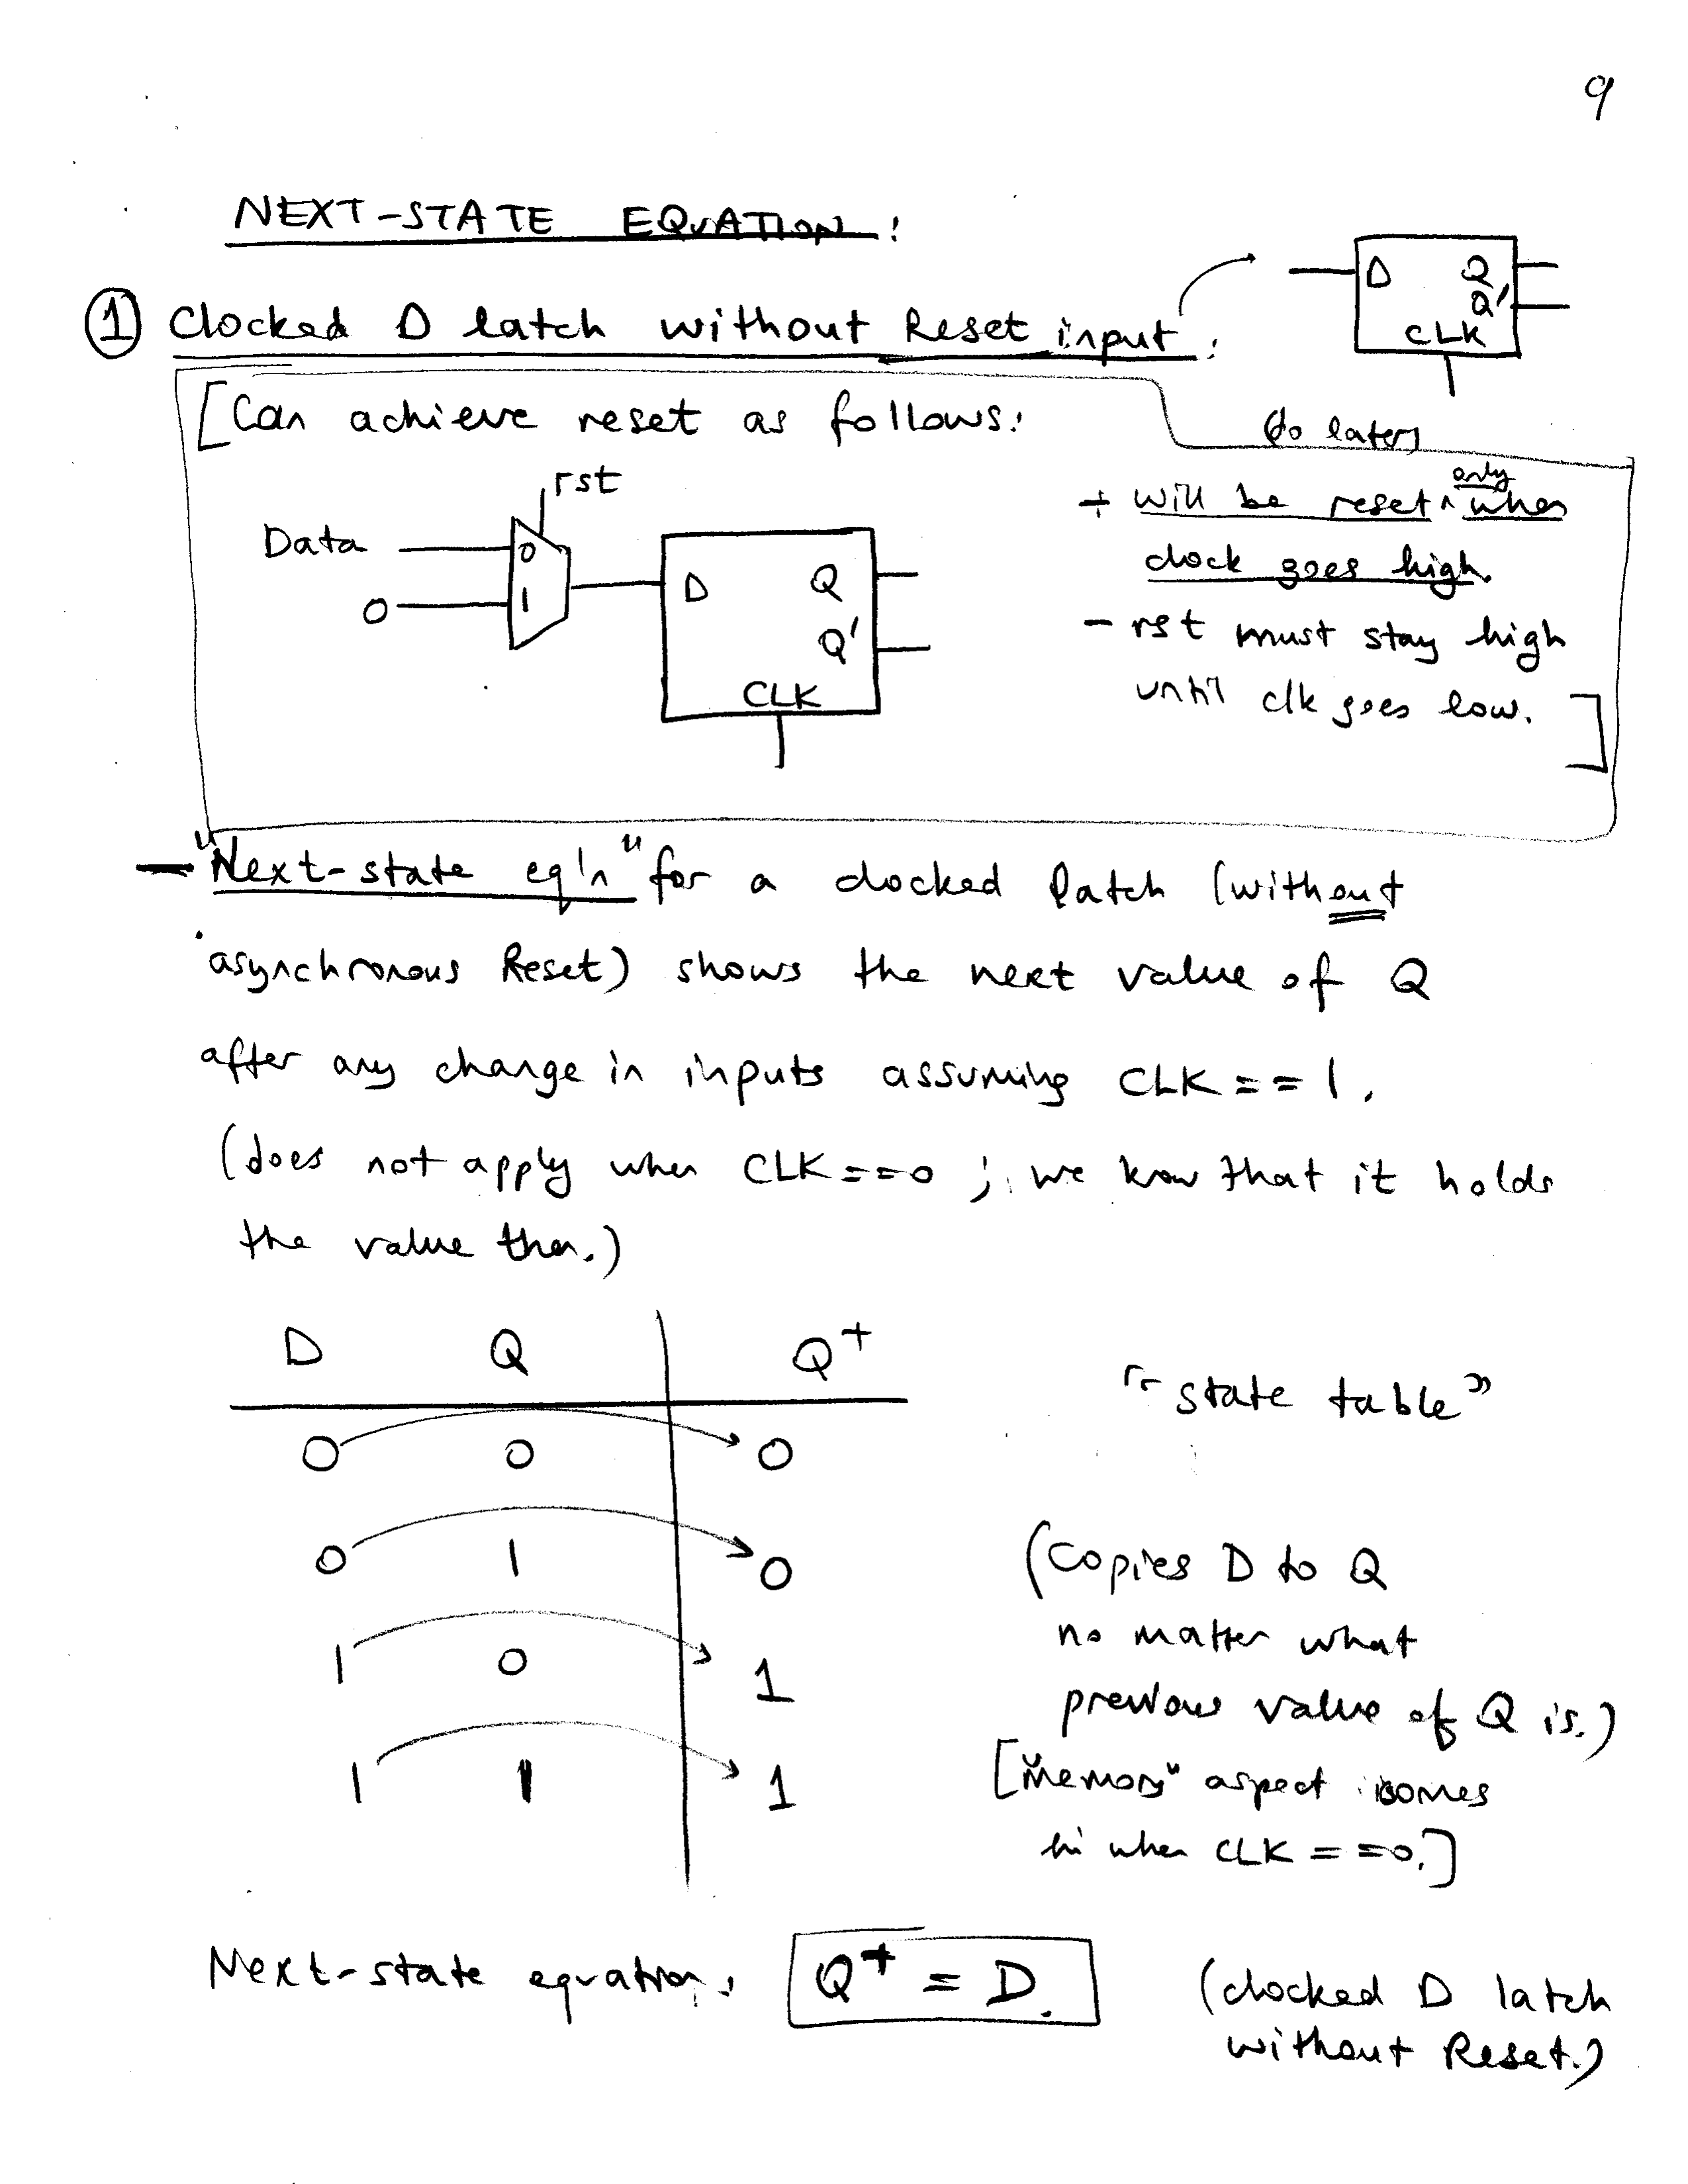 9
NEXT-STATE EQUATION:
① Clocked D latch without Reset input:
D Q
Q'
CLK
[Can achieve reset as follows:
do later
rst
Data
0
0
1
D Q
Q'
CLK
+ will be reset ^ only when
clock goes high.
- rst must stay high
until clk goes low. ]
- "Next-state eq'n" for a clocked latch (without
asynchronous Reset) shows the next value of Q
after any change in inputs assuming CLK == 1.
(does not apply when CLK==0 ; we know that it holds
the value then.)
D Q Q+
0 0 0
0 1 0
1 0 1
1 1 1
"state table"
(Copies D to Q
no matter what
previous value of Q is.)
["Memory" aspect comes
in when CLK ==0.]
Next-state equation: Q+ = D.
(clocked D latch
without Reset.)